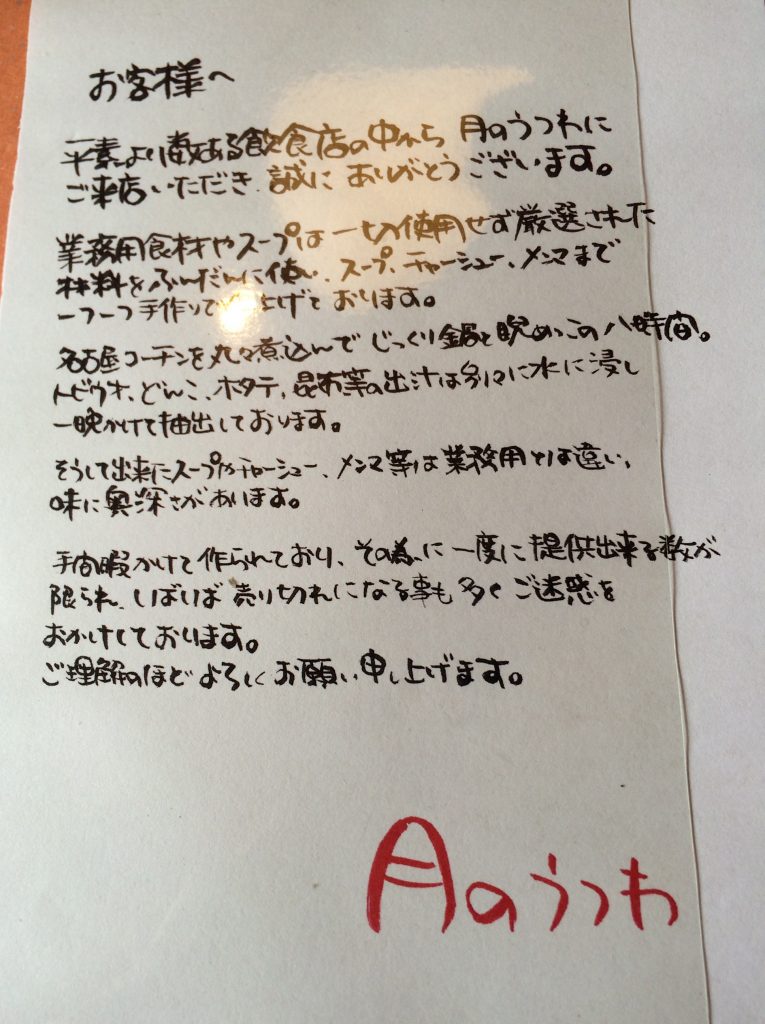 お客様へ
平素より数ある飲食店の中から 月のうつわに
ご来店いただき、誠に ありがとうございます。
業務用食材やスープは一切使用せず厳選された
材料をふんだんに使い、スープ、チャーシュー、メンマまで
一つ一つ手作りで 上げて おります。
名古屋コーチンを丸々煮込んで じっくり鍋と睨めっこの八時間。
トビウオ、どんこ、ホタテ、昆布等の出汁は別々に水に浸し
一晩かけて抽出しております。
そうして出来たスープやチャーシュー、メンマ等は業務用とは違い、
味に奥深さがあります。
手間暇かけて作られており、その為に一度に提供出来る数が
限られ、しばしば売り切れになる事も多くご迷惑を
おかけしております。
ご理解のほど よろしくお願い申し上げます。
月のうつわ